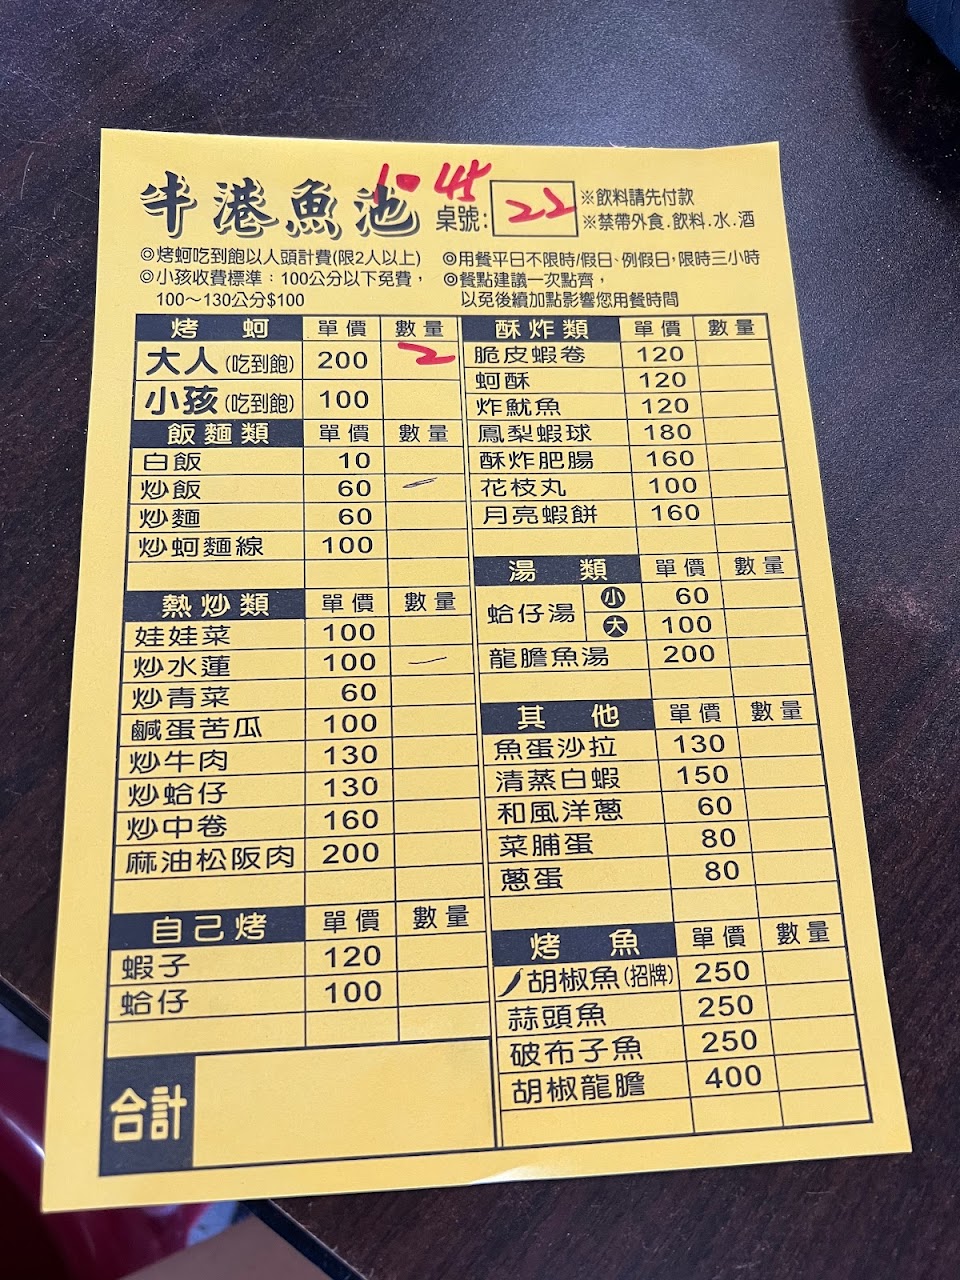 牛港魚池
10 45
桌號: 22
※飲料請先付款
※禁帶外食.飲料.水.酒
◎烤蚵吃到飽以人頭計費(限2人以上)
◎小孩收費標準：100公分以下免費，
100～130公分$100
◎用餐平日不限時/假日、例假日,限時三小時
◎餐點建議一次點齊，
以免後續加點影響您用餐時間
烤 蚵 單價 數量
大人(吃到飽) 200 2
小孩(吃到飽) 100
飯麵類 單價 數量
白飯 10
炒飯 60 一
炒麵 60
炒蚵麵線 100
熱炒類 單價 數量
娃娃菜 100
炒水蓮 100 一
炒青菜 60
鹹蛋苦瓜 100
炒牛肉 130
炒蛤仔 130
炒中卷 160
麻油松阪肉 200
自己烤 單價 數量
蝦子 120
蛤仔 100
合計
酥炸類 單價 數量
脆皮蝦卷 120
蚵酥 120
炸魷魚 120
鳳梨蝦球 180
酥炸肥腸 160
花枝丸 100
月亮蝦餅 160
湯 類 單價 數量
蛤仔湯 小 60
大 100
龍膽魚湯 200
其 他 單價 數量
魚蛋沙拉 130
清蒸白蝦 150
和風洋蔥 60
菜脯蛋 80
蔥蛋 80
烤 魚 單價 數量
胡椒魚(招牌) 250
蒜頭魚 250
破布子魚 250
胡椒龍膽 400